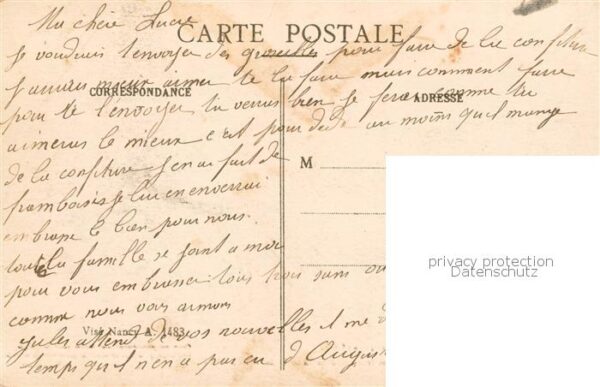 Ma chère Lucie
CARTE POSTALE
je voudrais t'envoyer des groseilles pour faire de la confiture
j'aurais mieux aimer te la faire mais comment faire
CORRESPONDANCE
ADRESSE
pour te l'envoyer tu verras bien je ferai comme tu
aimeras le mieux c'est pour dédé au moins qu'il mange
de la confiture j'en ai fait de
M
framboises je lui en enverrai
embrasse le bien pour nous
toute la famille se joint a moi
pour vous embrasser tous trois sans
comme nous vous aimons
Visé Nancy A. 1483
Jules attend de vos nouvelles il me
temps qu'il n'en a pas eu d'
privacy protection
Datenschutz